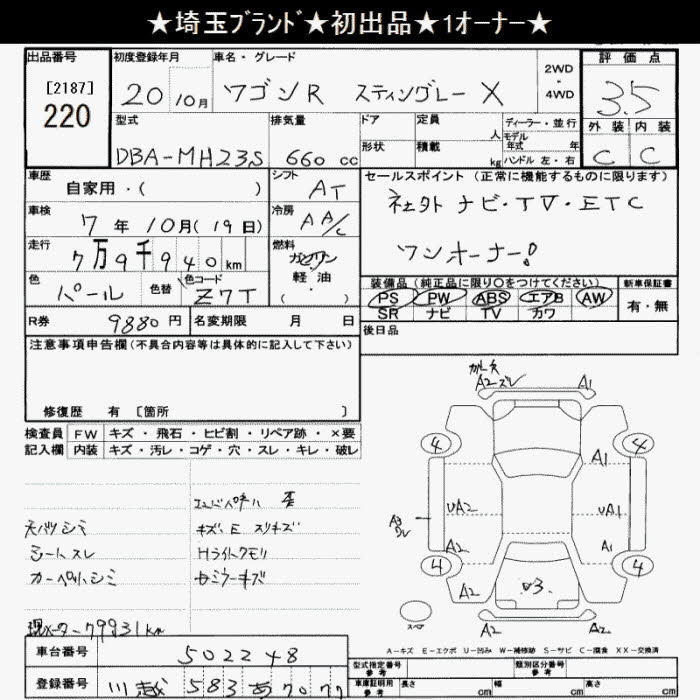 ★埼玉ﾌﾞﾗﾝﾄﾞ★初出品★1オーナー★
出品番号
[2187]
220
初度登録年月
20年10月
車名・グレード
ワゴンR スティングレー X
2WD
・
4WD
評価点
3.5
外装 内装
C C
型式
DBA-MH23S
排気量
660 cc
ドア
形状
定員 人
積載 kg
ディーラー・並行
モデル年式 年
ハンドル 左・右
車歴
自家用・( )
シフト
AT
車検
7年10月(19日)
冷房
AA/C
走行
7万9千940km
燃料
ガソリン
・
軽油
( )
色
パール
色替
色コード
Z7T
R券
9880円
名変期限 月 日
セールスポイント(正常に機能するものに限ります)
社外 ナビ・TV・ETC
ワンオーナー!
装備品(純正品に限り○をつけてください)
PS PW ABS エアB AW
SR ナビ TV カワ
新車保証書
有・無
後日品
注意事項申告欄(不具合内容等は具体的に記入して下さい)
修復歴 有 [箇所 ]
検査員記入欄
FW キズ・飛石・ヒビ割・リペア跡・×要
内装 キズ・汚レ・コゲ・穴・スレ・キレ・破レ
天バリシミ
シートスレ
カーペットシミ
現メーター79931km
キズ、E スリキズ
Hライトクモリ
セミラーキズ
A2 ズレ A1
4 4
A1
UA2 UA1
A2 A1
4 4
A2 A2
03.
A2 A2
スペア
A-キズ E-エクボ U-凹み W-補修跡 S-サビ C-腐食 XX-交換済
車台番号
502248
登録番号
川越 583 あ 7077
型式指定番号
参考
類別区分番号
参考
車庫証明用
参考
長さ cm
幅 cm
高さ cm